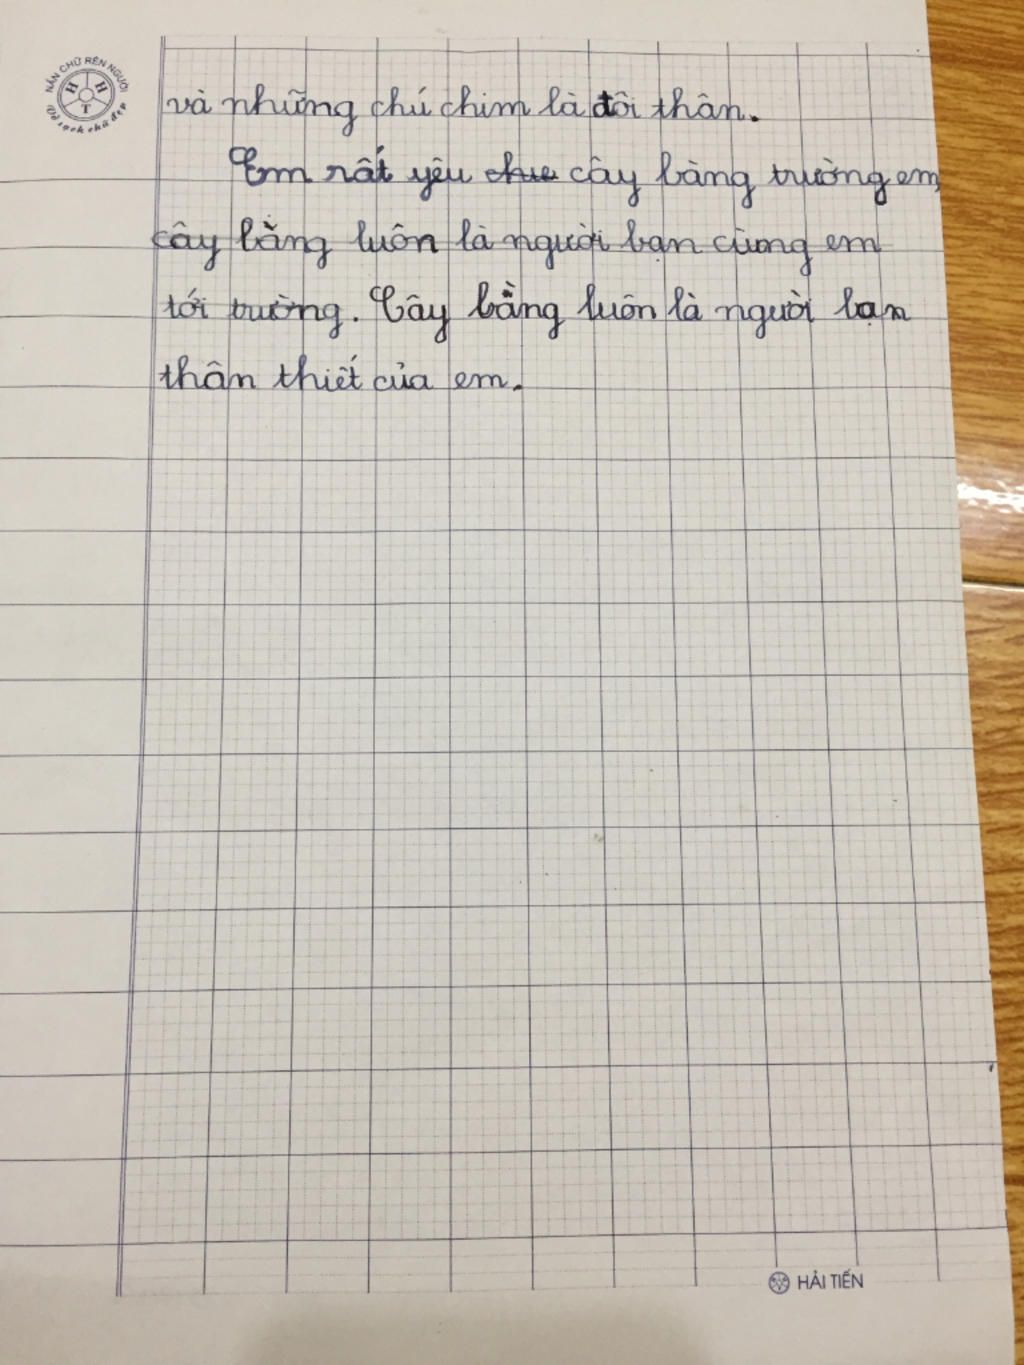 NẮN CHỮ RÈN NGƯỜI
H H T
Vở sạch chữ đẹp
và những chú chim là đôi thân.
Em rất yêu cây bàng trường em
cây bằng luôn là người bạn cùng em
tới trường. Cây bằng luôn là người bạn
thân thiết của em.
HẢI TIẾN